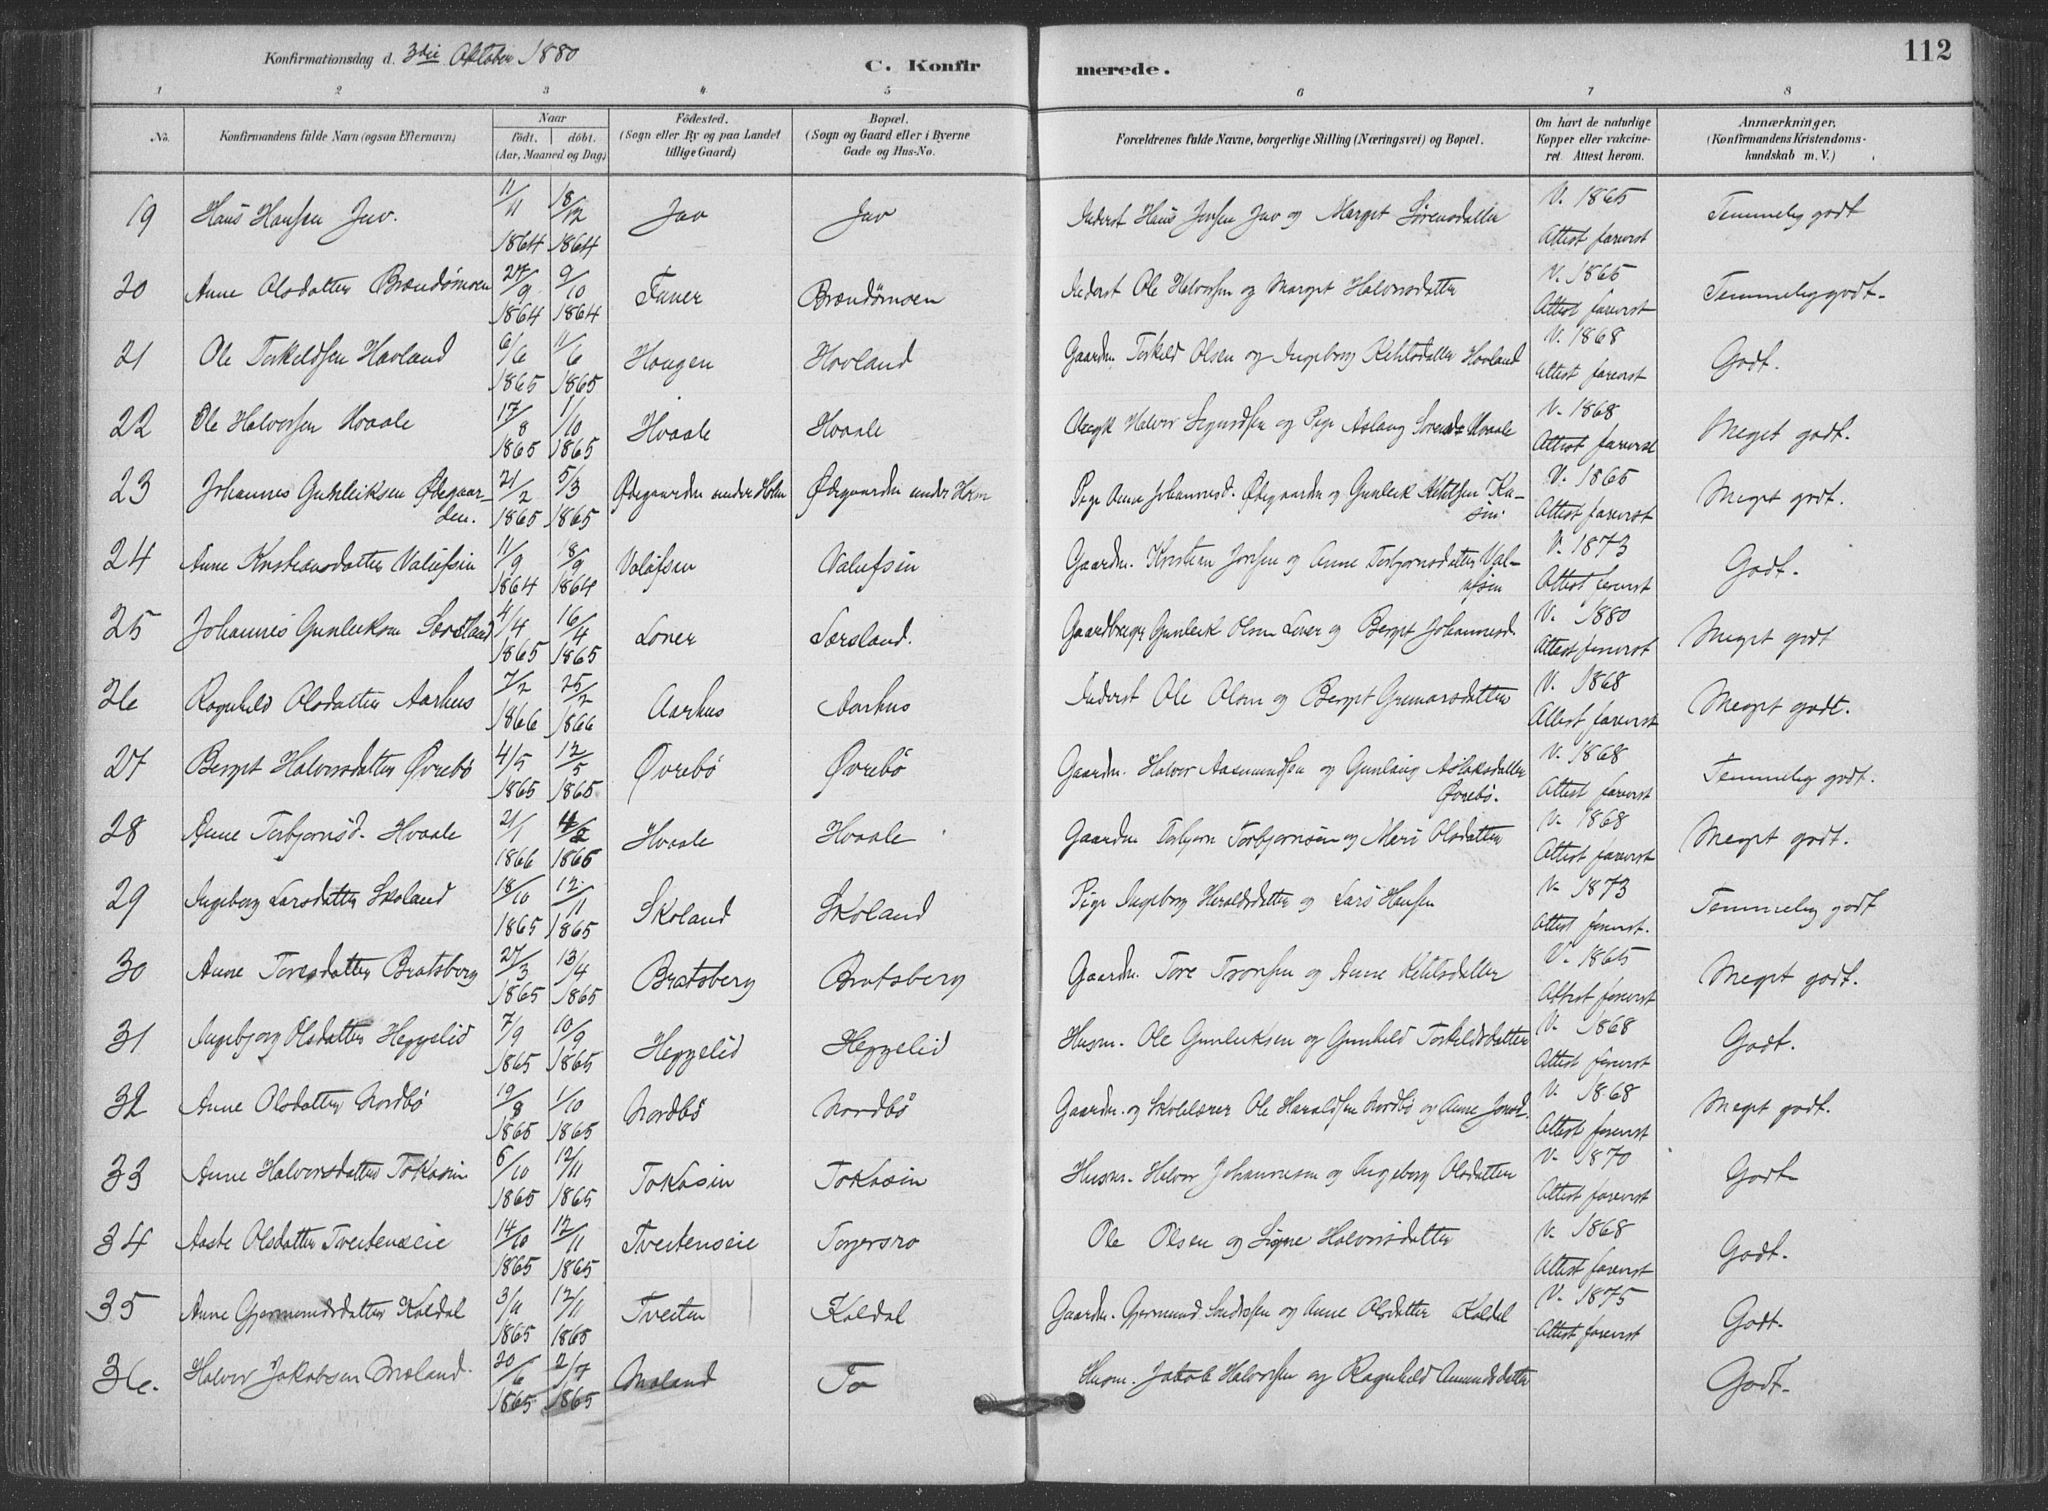 Konfirmationsdag d. 3die Oktober 1880
C. Konfirmerede.
112
1 2 3 4 5 6 7 8
No. Konfirmandens fulde Navn (ogsaa Efternavn) Naar födt. döbt. (Aar, Maaned og Dag) Födested. (Sogn eller By og paa Landet tillige Gaard) Bopæl. (Sogn og Gaard eller i Byerne Gade og Hus-No. Forældrenes fulde Navne, borgerlige Stilling (Næringsvei) og Bopæl. Om havt de naturlige Kopper eller vakcineret. Attest herom. Anmærkninger. (Konfirmandens Kristendomskundskab m. V.)
19 Hans Hansen Juv. 11/11 1864 18/12 1864 Juv Juv Inderst Hans Jonsen Juv og Margit Sørensdatter V. 1865 Attest forevist Temmelig godt
20 Anne Olsdatter Brændømoen 27/9 1864 9/10 1864 Funer Brændømoen Inderst Ole Halvorsen og Margit Halvorsdatter V. 1865 Attest forevist Temmelig godt.
21 Ole Torkeldsen Havland 6/6 1865 11/6 1865 Haugen Hovland Gaardm. Torkeld Olsen og Ingeborg Ketilsdatter Hovland V. 1868 Attest forevist Godt.
22 Ole Halvorsen Hvaale 17/8 1865 1/10 1865 Hvaale Hvaale Halvor Sigurdsen og Pige Aslaug Hvaale V. 1868 Attest forevist Meget godt.
23 Johannes Gunleiksen Ødegaarden. 21/2 1865 5/3 1865 Ødegaarden under Holm Ødegaarden under Holm Pige Anne Johannesd. Ødegaarden og Gunleik Ketilsen Kasin V. 1865 Attest forevist Meget godt.
24 Anne Kristiansdatter Valufsin 11/9 1864 18/9 1864 Valufsen Valufsin Gaardm. Kristian Jonsen og Anne Torbjornsdatter Valufsin V. 1873 Attest forevist Godt.
25 Johannes Gunleiksen Særsland 4/4 1865 16/4 1865 Loner Særsland. Gunleik Olsen Loner og Bergit Johannesd. V. 1880 Attest forevist Meget godt
26 Ragnhild Olsdatter Aarhus 7/2 1866 25/2 1866 Aarhus Aarhus Inderst Ole Olsen og Bergit Gunnarsdatter V. 1868 Attest forevist Meget godt.
27 Bergit Halvorsdatter Øvrebö 4/5 1865 12/5 1865 Øvrebö Øvrebö Gaardm. Halvor Aasmundsen og Gunlaug Aslaksdatter Øvrebö. V. 1868 Attest forevist Temmelig godt.
28 Anne Torbjornsd. Hvaale 21/1 1866 4/2 1865 Hvaale Hvaale Gaardm Torbjorn Torbjornsen og Mari Olsdatter V. 1868 Attest forevist Meget godt.
29 Ingeborg Larsdatter Skoland 18/10 1865 12/11 1865 Skoland Skoland Pige Ingeborg Heraldsdatter og Lars Hansen V. 1873 Attest forevist. Temmelig godt
30 Anne Toresdatter Bratsberg 27/3 1865 13/4 1865 Bratsberg Bratsberg Gaardm. Tore Tronsen og Anne Ketilsdatter V. 1865 Attest forevist Meget godt.
31 Ingebjorg Olsdatter Heggelid 7/9 1865 10/9 1865 Heggelid Heggelid Husm. Ole Gunleiksen og Gunhild Torkeldsdatter V. 1868 Attest forevist Godt.
32 Anne Olsdatter Nordbö 19/8 1865 1/10 1865 Nordbö Nordbö Gaardm. og Skolelærer Ole Haraldsen Nordbö og Anne Jonsd. V. 1868 Attest forevist Meget godt.
33 Anne Halvorsdatter Tokasin 6/10 1865 12/11 1865 Tokasin Tokasin Husm. Halvor Johannesen og Ingeborg Olsdatter V. 1870 Attest forevist Godt
34 Aaste Olsdatter Tveitenseie 14/10 1865 12/11 1865 Tveitenseie Torgersro Ole Olsen og Signe Halvorsdatter V. 1868 Attest forevist Godt.
35 Anne Gjermundsdatter Kaldal 3/11 1865 12/11 1865 Tveiten Kaldal Gaardm. Gjermund og Anne Olsdatter Kaldal V. 1875 Attest forevist Godt.
36. Halvor Jakobsen Maland. 20/6 1865 2/7 1865 Maland To Husm. Jakob Halvorsen og Ragnhild Amundsdatter Godt.